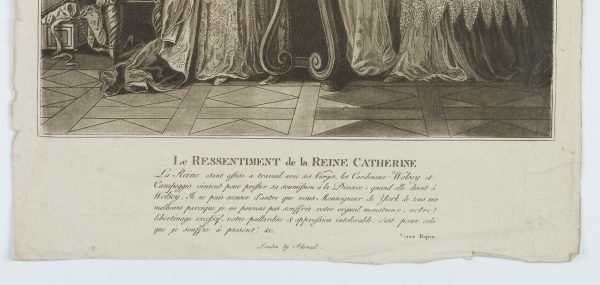 Le RESSENTIMENT de la REINE CATHERINE
La Reine etant assise a travail avec ses Vierges, les Cardinaux Wolsey et
Campeggio vinrent pour presser sa soumission à la Divorce; quand elle disoit à
Wolsey, Je ne puis accuser d'autre que vous Monseigneur de York de tous mes
malheurs parceque je ne pouvois pas souffrir votre orgueil monstreux, votre
libertinage excessif, votre paillardise & oppression intolerable, c'est pour cela
que je souffre à present. &c.
Voyez Rapin.
London by